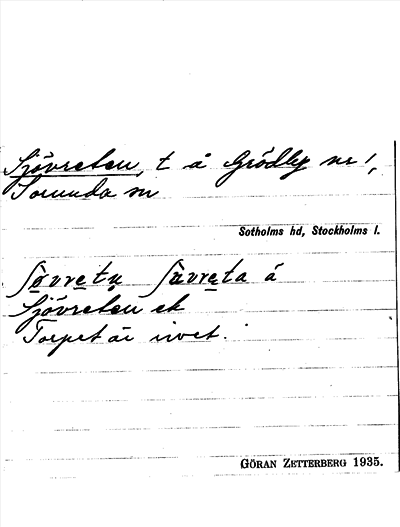 Sjövreten, t å Grödby nr 1,
Sorunda sn
Sotholms hd, Stockholms l.
ʃövretn̥ ʃüvreta å
Sjövreten ek
Torpet är rivet.
GÖRAN ZETTERBERG 1935.